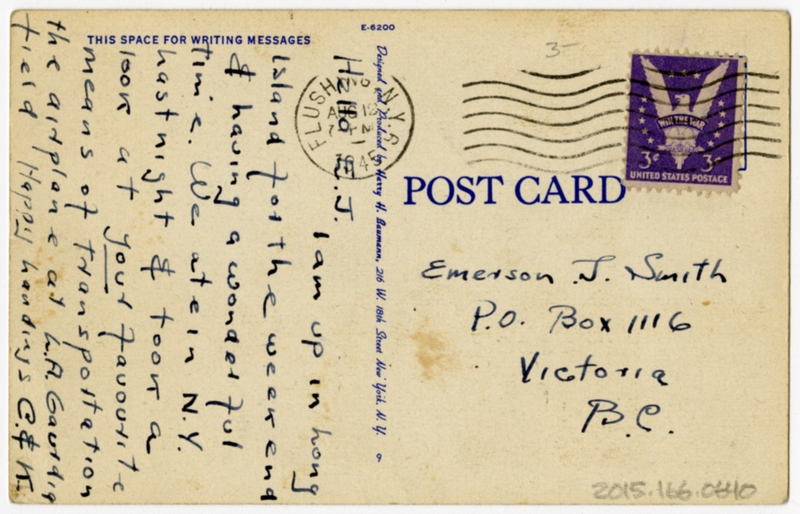 E-6200
THIS SPACE FOR WRITING MESSAGES
Hello E.J.
I am up in Long
Island for the weekend
& having a wonderful
time. We ate in N.Y.
last night & took a
look at your favourite
means of transportation
the airplane at LA Gaurdia
field Happy landings
Designed and Produced by Harry H. Baumann, 216 W. 18th Street New York, N. Y.
FLUSHING N.Y.
AUG
POST CARD
WIN THE WAR
3¢ 3¢
UNITED STATES POSTAGE
Emerson J. Smith
P.O. Box 1116
Victoria
B.C.
3-
2015.166.0640